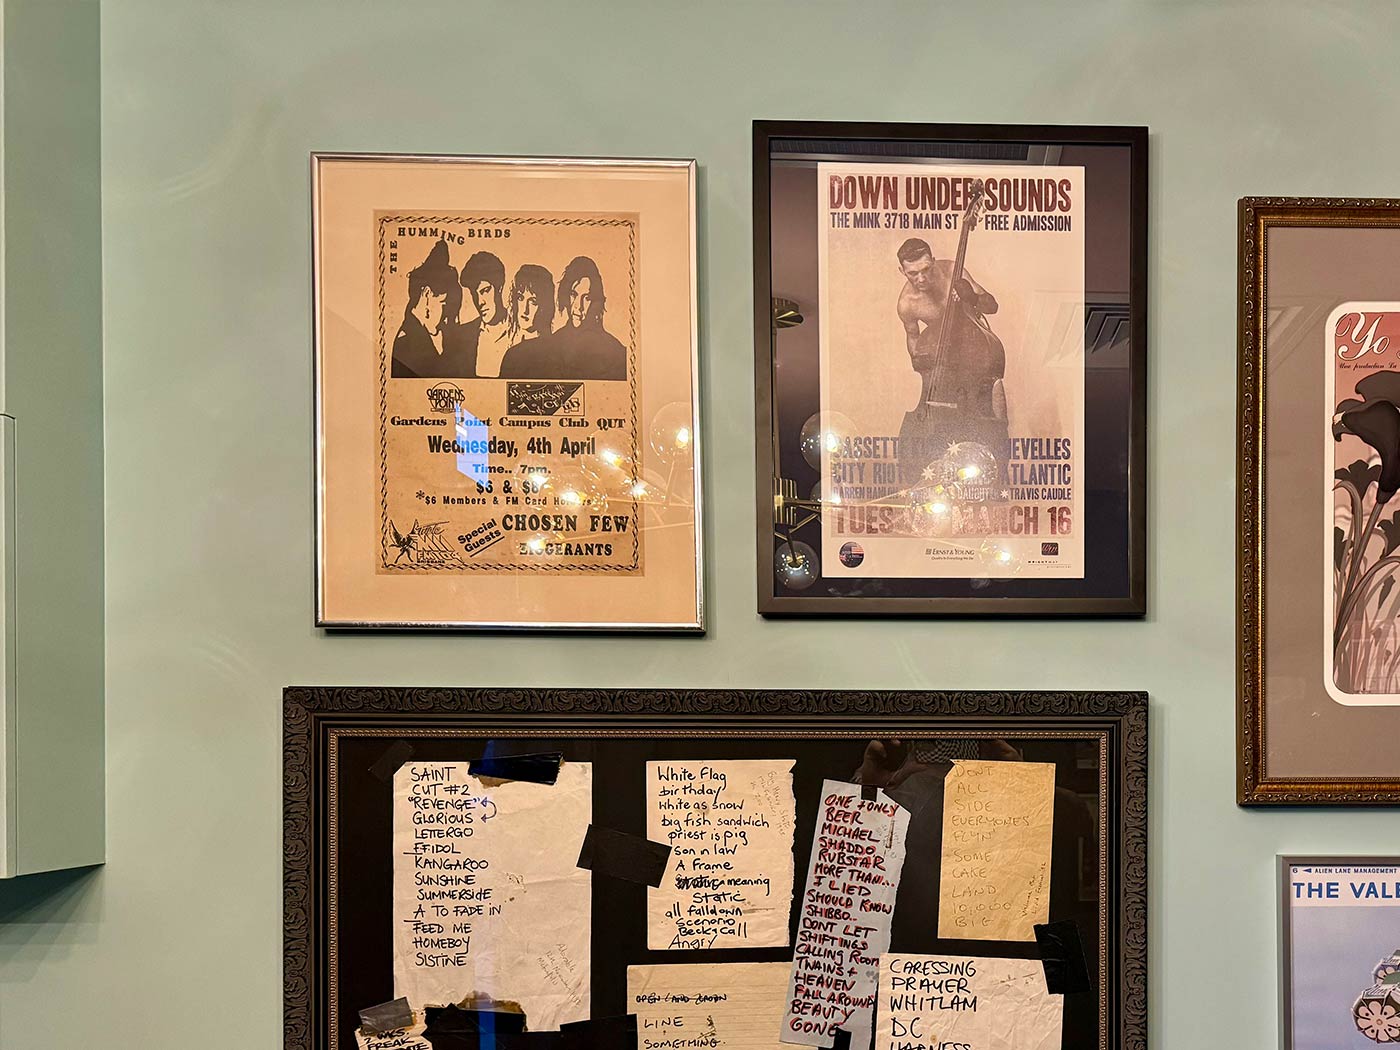 THE HUMMING BIRDS
GARDENS POINT
Gardens Point Campus Club QUT
Wednesday, 4th April
Time.. 7pm.
$6 & $8
*$6 Members & FM Card Holders
Special Guests
CHOSEN FEW
BRISBANE
DOWN UNDER SOUNDS
THE MINK 3718 MAIN ST FREE ADMISSION
CITY RIOT ATLANTIC
DAUGHTER TRAVIS CAUDLE
MARCH 16
ERNST & YOUNG
Quality In Everything We Do
Yo
Une production La
SAINT
CUT #2
"REVENGE"
GLORIOUS
LETTERGO
KANGAROO
SUNSHINE
SUMMERSIDE
A TO FADE IN
FEED ME
HOMEBOY
SISTINE
FREAK
White Flag
birthday
white as snow
big fish sandwich
priest is pig
son in law
A frame
meaning
Static
all falldown
Scenario
Becks Call
Angry
LINE
SOMETHING.
ONE + ONLY
BEER
MICHAEL
SHADDO
RUBSTAR
MORE THAN...
I LIED
SHOULD KNOW
SHIBBO..
DONT LET
SHIFTINGS
CALLING ROOM
TWAINS +
HEAVEN
FALL AROUND
BEAUTY
GONE
DONT
ALL
SIDE
EVERYONES
FLYIN'
SOME
CAKE
LAND
10,000
BIG
CARESSING
PRAYER
WHITLAM
DC
HARNESS
6 ◄ ALIEN LANE MANAGEMENT
THE VALE